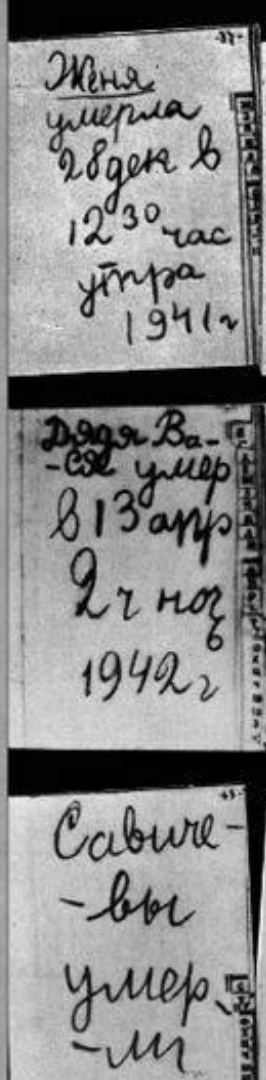 Женя
умерла
28 дек в
12 30 час
утра
1941 г
Дядя Ва-
-ся умер
в 13 апр
2 ч ночь
1942 г
Савиче-
-вы
умер
-ли